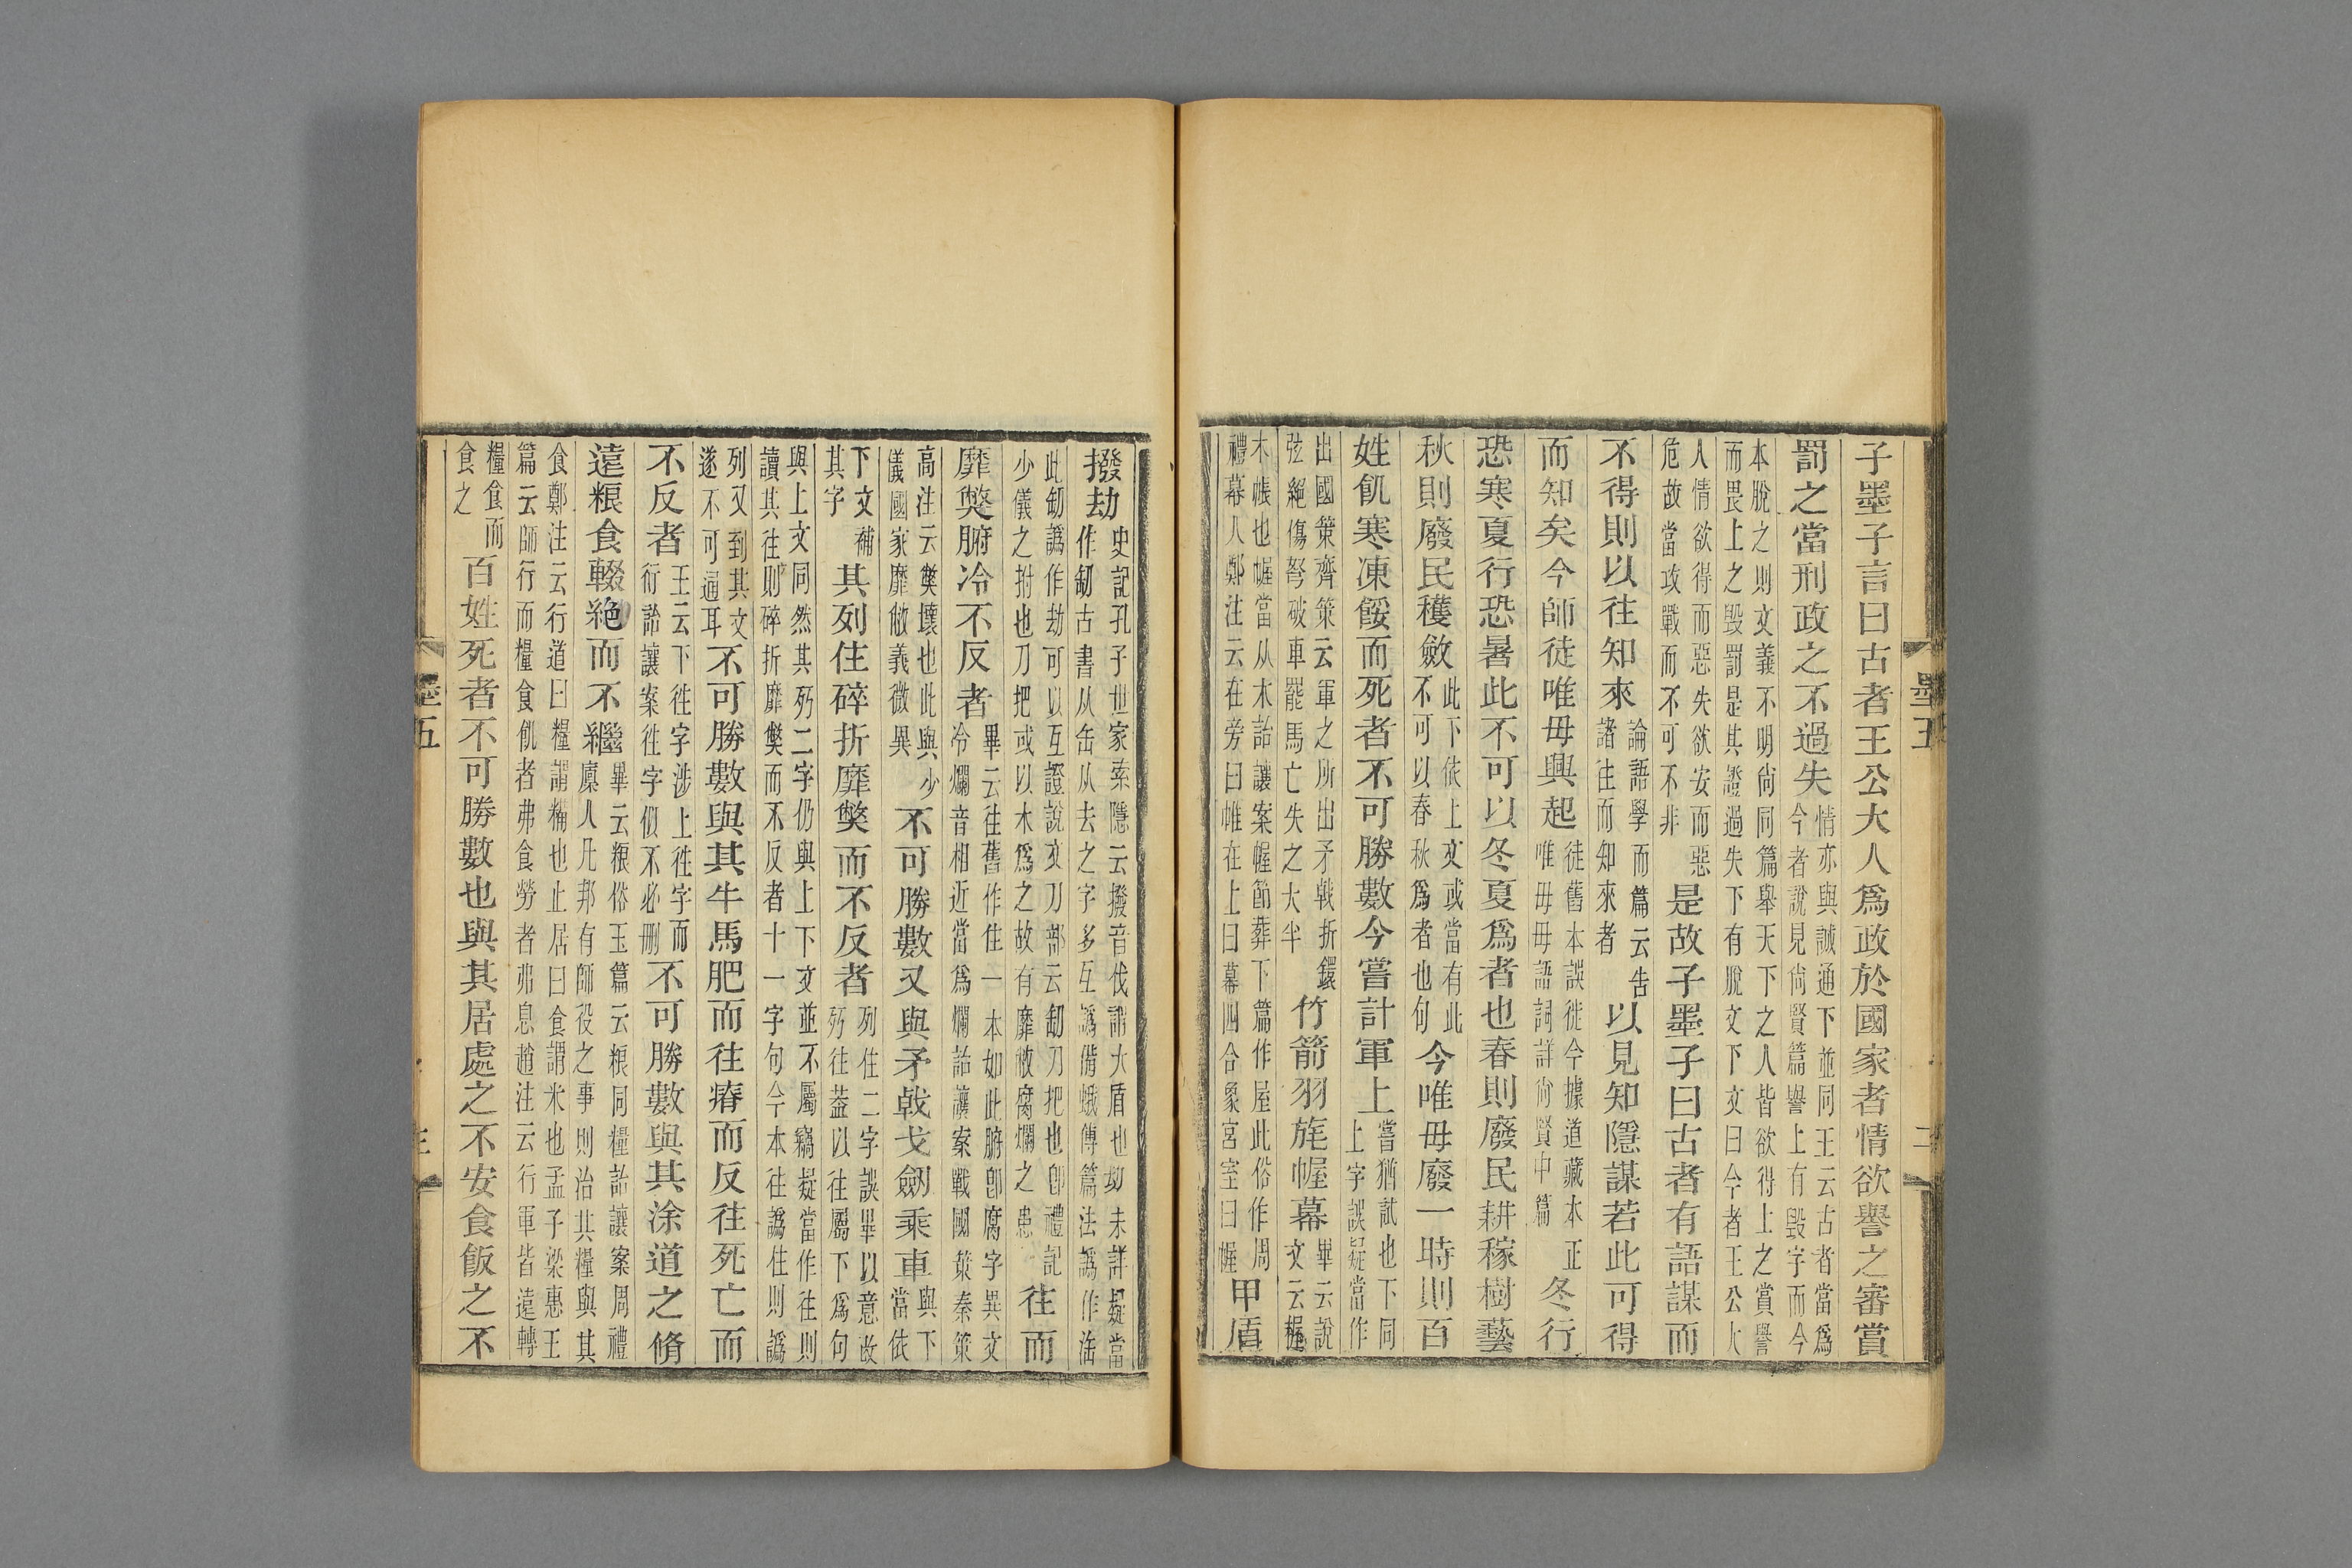 子墨子言曰古者王公大人爲政於國家者情欲譽之審賞
罰之當刑政之不過失情亦與誠通下並同王云古者當爲今者說見尙賢篇譽上有毀字而今
本脫之則文義不明尙同篇舉天下之人皆欲得上之賞譽而畏上之毀罰是其證過失下有脫文下文曰今者王公大
人情欲得而惡失欲安而惡危故當攻戰而不可不非是故子墨子曰古者有語謀而
不得則以往知來論語學而篇云告諸往而知來者以見知隱謀若此可得
而知矣今師徒唯毋興起徒舊本誤徙今據道藏本正唯毋毋語詞詳尙賢中篇冬行
恐寒夏行恐暑此不可以冬夏爲者也春則廢民耕稼樹藝
秋則廢民穫斂此下依上文或當有此不可以春秋爲者也句今唯毋廢一時則百
姓飢寒凍餒而死者不可勝數今嘗計軍上嘗猶試也下同上字誤疑當作
出國策齊策云軍之所出矛戟折鐶弦絕傷弩破車罷馬亡失之大半竹箭羽旄幄幕畢云說文云楃
木帳也幄當从木詒讓案幄節葬下篇作屋此俗作周禮幕人鄭注云在旁曰帷在上曰幕四合象宮室曰幄甲盾
撥劫史記孔子世家索隱云撥音伐謂大盾也劫未詳疑當作㔍古書从缶从去之字多互譌備蛾傅篇法譌作㳶
此㔍譌作劫可以互證說文刀部云㔍刀把也卽禮記少儀之拊也刀把或以木爲之故有靡敝腐爛之患往而
靡獘腑冷不反者畢云往舊作住一本如此腑卽腐字異文冷爛音相近當爲爛詒讓案戰國策秦策
高注云獘壞也此與少儀國家靡敝義微異不可勝數又與矛戟戈劒乘車與下當依
下文補其字其列住碎折靡獘而不反者列住二字誤畢以意改㱛往葢以往屬下爲句
與上文同然其㱛二字仍與上下文並不屬竊疑當作往則讀其往則碎折靡獘而不反者十一字句今本往譌住則譌
列又到其文遂不可通耳不可勝數與其牛馬肥而往瘠而反往死亡而
不反者王云下往字涉上往字而衍詒讓案往字似不必刪不可勝數與其涂道之脩
遠粮食輟絶而不繼畢云粮俗玉篇云粮同糧詒讓案周禮廩人凡邦有師役之事則治其糧與其
食鄭注云行道曰糧謂糒也止居曰食謂米也孟子梁惠王篇云師行而糧食飢者弗食勞者弗息趙注云行軍皆遠轉
糧食而食之百姓死者不可勝數也與其居處之不安食飯之不
墨五
二
墨五